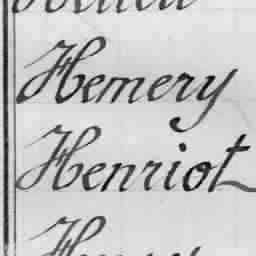 Hemery
Henriot